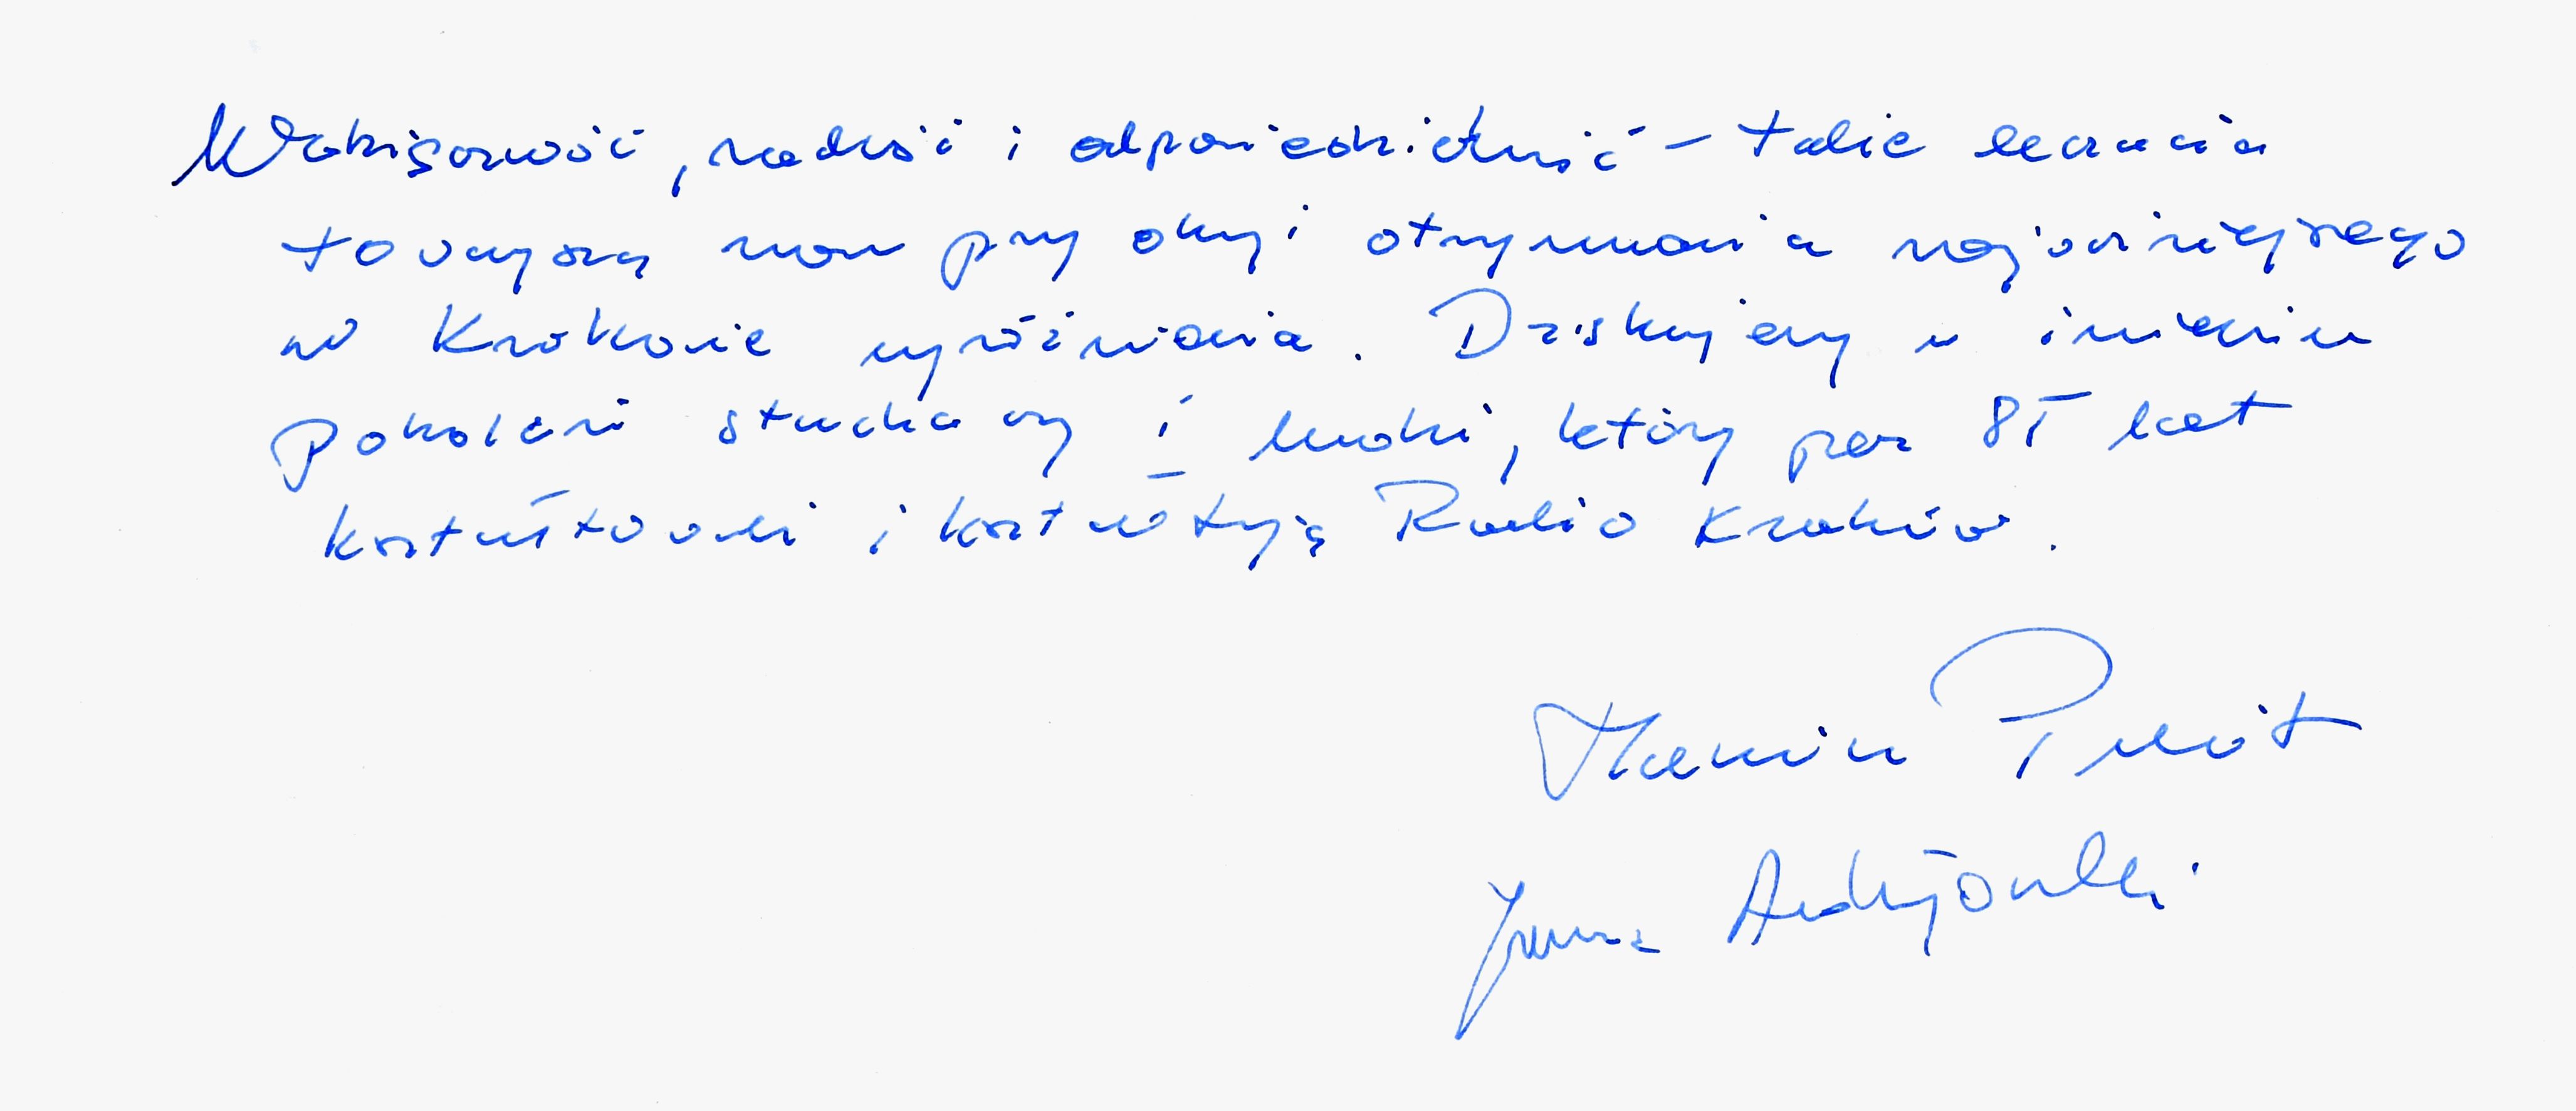 Wdzięczność, radość i odpowiedzialność – takie uczucia
towarzyszą nam przy okazji otrzymania najważniejszego
w Krakowie wyróżnienia. Dziękujemy w imieniu
pokoleń słuchaczy i ludzi, którzy przez 85 lat
kształtowali i kształtują Radio Kraków.
Marcin Pulit